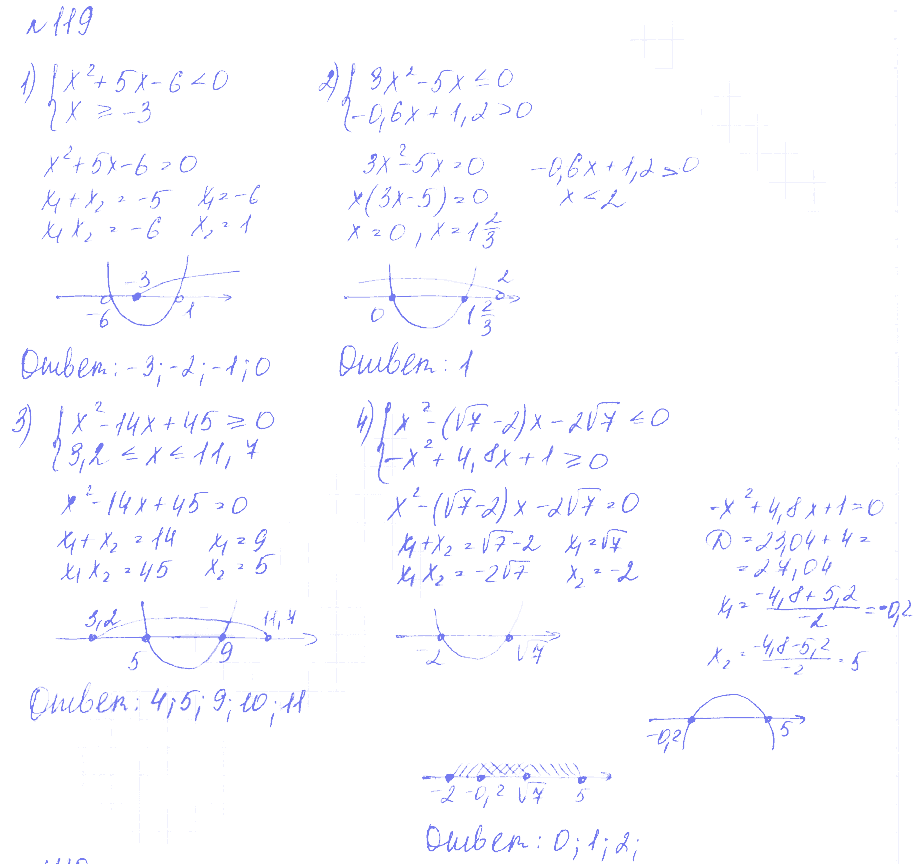 №119
1) { x² + 5x - 6 < 0
x ≥ -3
x² + 5x - 6 = 0
x₁ + x₂ = -5   x₁ = -6
x₁ x₂ = -6   x₂ = 1
-3
-6   1
Ответ: -3; -2; -1; 0
2) { 3x² - 5x ≤ 0
-0,6x + 1,2 > 0
3x² - 5x = 0   -0,6x + 1,2 > 0
x(3x - 5) = 0   x < 2
x = 0, x = 1 2/3
2
0   1 2/3
Ответ: 1
3) { x² - 14x + 45 ≥ 0
3,2 ≤ x ≤ 11,7
x² - 14x + 45 = 0
x₁ + x₂ = 14   x₁ = 9
x₁ x₂ = 45   x₂ = 5
3,2   11,7
5   9
Ответ: 4; 5; 9; 10; 11
4) { x² - (√7 - 2)x - 2√7 ≤ 0
-x² + 4,8x + 1 ≥ 0
x² - (√7 - 2)x - 2√7 = 0
x₁ + x₂ = √7 - 2   x₁ = √7
x₁ x₂ = -2√7   x₂ = -2
-2   √7
-x² + 4,8x + 1 = 0
D = 23,04 + 4 =
= 27,04
x₁ = (-4,8 + 5,2)/(-2) = -0,2
x₂ = (-4,8 - 5,2)/(-2) = 5
-0,2   5
-2   -0,2   √7   5
Ответ: 0; 1; 2;